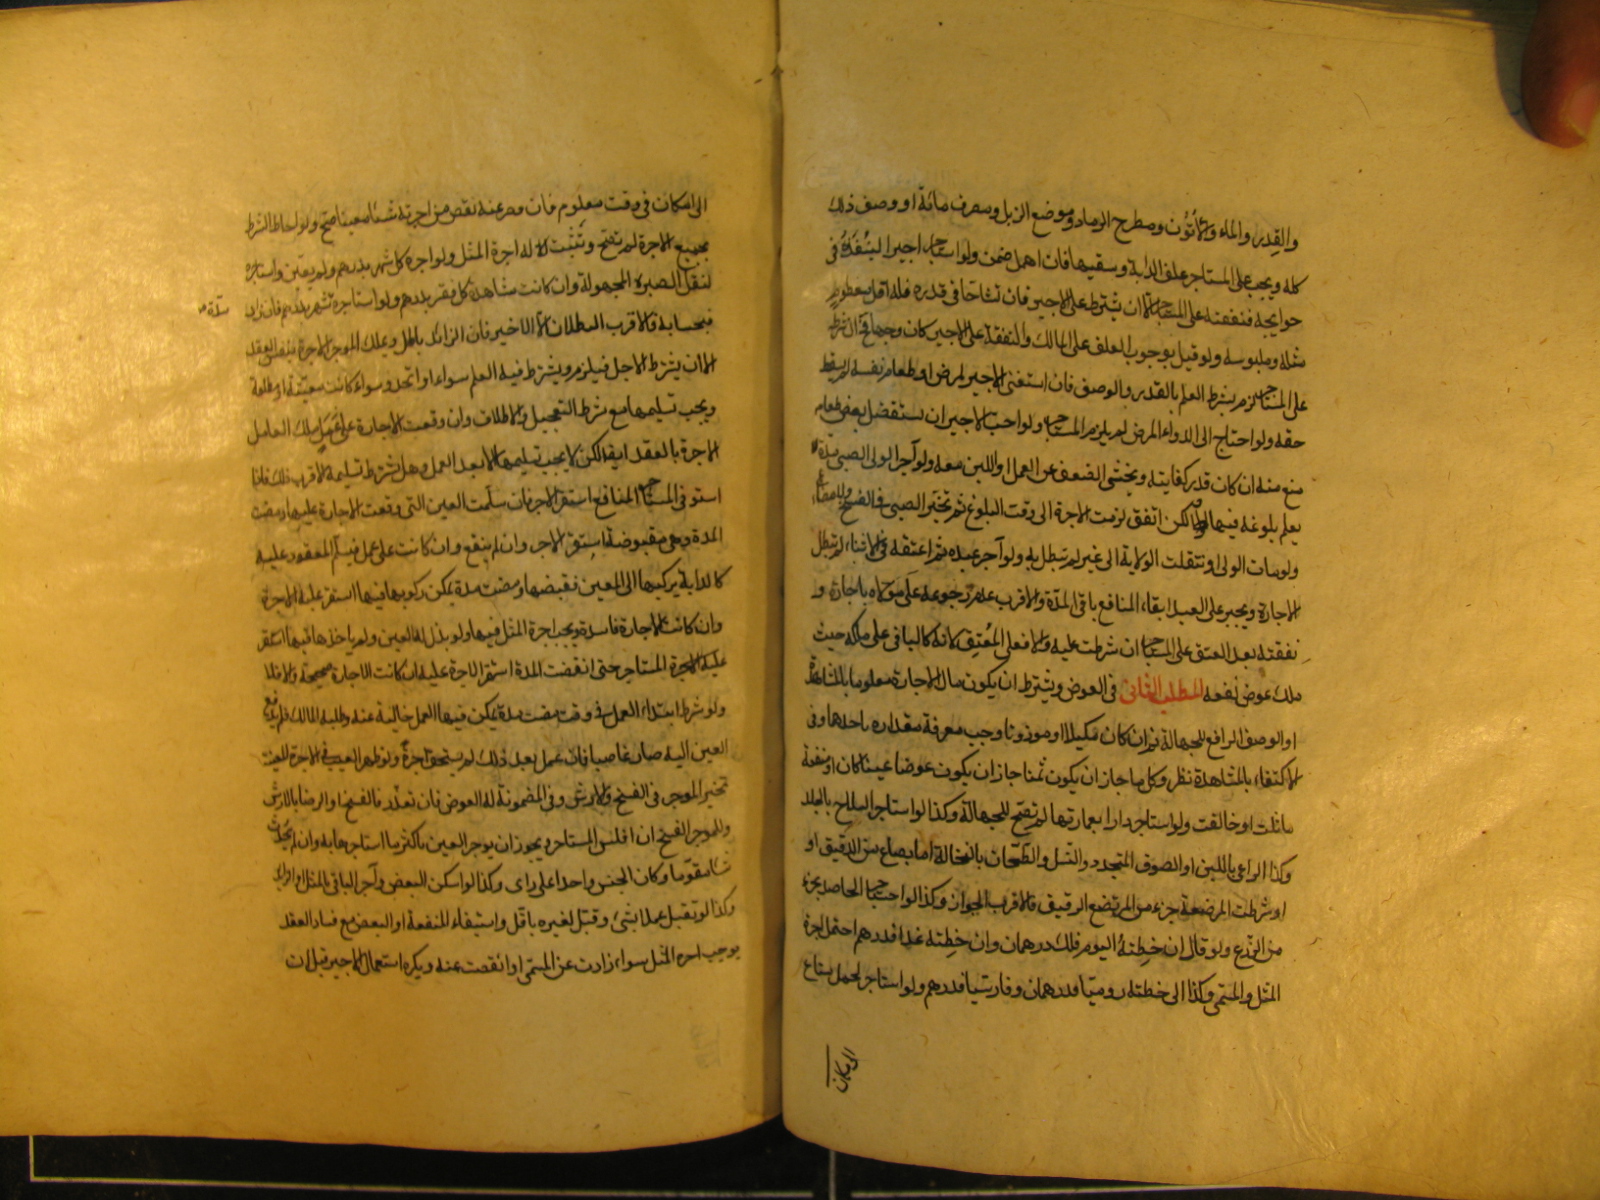 والقدر والماء والأتون ومطرح الرماد وموضع الزبل ومصرف مائه او وصف ذلك
كله ويجب على المستاجر علف الدابة وسقيها فان اهمل ضمن ولو استاجر اجيرا لينفذه فى
حوايجه فنفقته على المستاجر الا ان يشترط على الاجير فان تشاحا فى قدره فله اقل مطعوم
مثله وملبوسه ولو قيل بوجوب العلف على المالك والنفقة على الاجير كان وجها فان شرط
على المستاجر لزم بشرط العلم بالقدر والوصف فان استغنى الاجير لمرض او طعام نفسه لم يسقط
حقه ولو احتاج الى الدواء المرض لم يلزم المستاجر ولو احب الاجير ان يستفضل بعض طعامه
منع منه ان كان قدر كفايته ويخشى الضعف عن العمل او اللبن معه ولو آجر الولى الصبى مدة
يعلم بلوغه فيها لكن اتفق لزمت الاجرة الى وقت البلوغ ثم تخير الصبى فى الفسخ والامضاء
ولو مات الولى او انتقلت الولاية الى غير لم تبطل به ولو آجر عبده ثم اعتقه فى الاثناء لم تبطل
الاجارة ويجبر على العبد ابقاء المنافع باقى المدة والاقرب عدم رجوعه على مولاه باجارة و
نفقته بعد العتق على المستاجر ان شرطت عليه والا فعلى المعتق لانه كالباقى على ملكه حيث
ملك عوض نفعه المطلب الثانى فى العوض ويشترط ان يكون مال الاجارة معلوما بالمشاهدة
او الوصف الرافع للجهالة ثم ان كان مكيلا او موزونا وجب معرفة مقداره باحدها وفى
الاكتفاء بالمشاهدة نظر وكل ما جاز ان يكون ثمنا جاز ان يكون عوضا عينا كان او منفعة
ماثلت او خالفت ولو استاجر دارا بعمارتها لم تصح للجهالة وكذا لو استاجر السلاح بالجلد
وكذا الراعى باللبن او الصوف المتجدد والنسل والطحان بالنخالة اما بصاع من الدقيق او
او شرطت المرضعة جزء من المرتضع الرقيق فالاقرب الجواز وكذا لو استاجر الحاصد بجزء
من الزرع ولو قال ان خطته اليوم فلك درهمان وان خطته غدا فدرهم احتمل اجرة
المثل والمسمى وكذا ان خطته روميا فدرهمان وفارسيا فدرهم ولو استاجر لحمل متاع
الى مكان
الى مكان فى وقت معلوم فان قصر عنه نقص من اجرته شيئا معينا صح ولو احاط الشرط
بجميع الاجرة لم تصح وتثبت له اجرة المثل ولو آجره كل شهر بدرهم ولم يعين واستاجره
لنقل الصبرة المجهولة وان كانت مشاهدة كل قفيز بدرهم ولو استاجره شهر بدرهم فان زاد
مدة
فبحسابه فالاقرب البطلان الا الاخير فان الزائد باطل ويملك الموجر الاجرة بنفس العقد
الا ان يشترط الاجل فيلزم ويشترط فيه العلم سواء اتحد وسواء كانت معينة او مطلقة
ويجب تسليمها مع شرط التعجيل والاطلاق وان وقعت الاجارة على عمل ملك العامل
الاجرة بالعقد ايضا لكن لا يجب تسليمها الا بعد العمل وهل يشترط تسليمه الاقرب ذلك فاذا
استوفى المستاجر المنافع استقر الاجر فان سلمت العين التى وقعت الاجارة عليها ومضت
المدة وهى مقبوضة استقر الاجر وان لم ينتفع وان كانت على عمل فيسلم المعقود عليه
كالدابة يركبها الى المعين فقبضها ومضت مدة يمكن ركوبها فيها استقر عليه الاجرة
وان كانت الاجارة فاسدة ويجب اجرة المثل فيها ولو بذل له العين ولم ياخذها فيها استقر
عليه الاجرة المستاجر حتى انقضت المدة استقر الاجرة عليه ان كانت الاجارة صحيحة والا فلا
ولو شرط ابتداء العمل فى وقت مضت مدة يمكن فيها العمل خالية عنه وطلبه المالك فلم يدفع
العين اليه صار غاصبا فان عمل بعد ذلك لم يستحق اجرة ولو ظهر العيب فى الاجرة المعينة
تخير الموجر فى الفسخ والارش وفى المضمونة له العوض فان تعذر فالفسخ او الرضا بالارش
وللموجر الفسخ ان افلس المستاجر ويجوز ان يوجر العين باكثر مما استاجرها به وان لم يحدث
شيئا مقوما وكان الجنس واحدا على راى وكذا لو اسكن البعض وآجر الباقى بالمثل او ازيد
وكذا لو تقبل عملا بشئ وقبل لغيره باقل واستيفاء المنفعة او البعض مع فساد العقد
يوجب اجرة المثل سواء زادت عن المسمى او انقصت عنه ويكره استعمال الاجير قبل ان